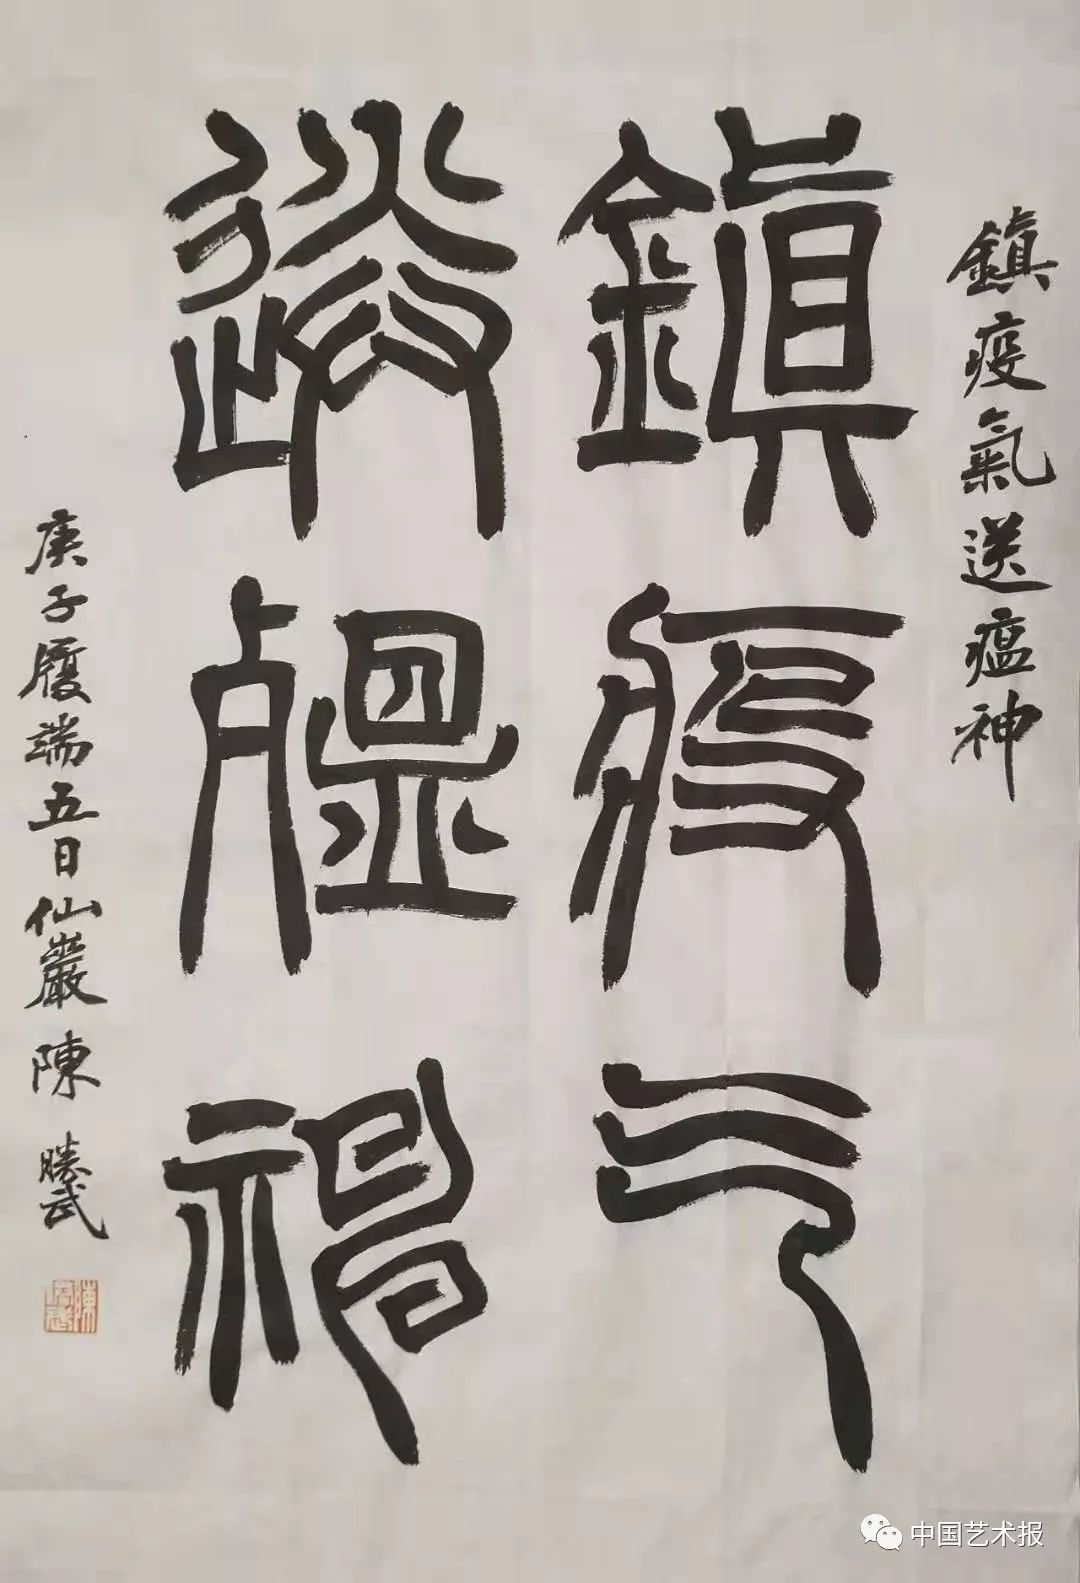 鎮疫氣送瘟神
鎮疫气
送瘟神
庚子履端五日仙巖陳勝武
中国艺术报